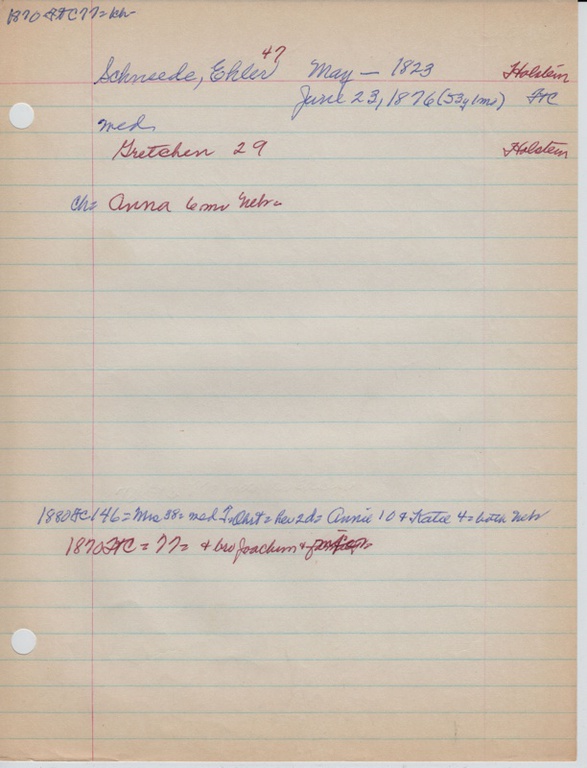 1870 FTC 77 = kh-
47
Schneede, Ehler May — 1823 Holstein
June 23, 1876 (53y1mo) FTC
med
Gretchen 29 Holstein
ch = Anna 6 mo Nebr.
1880 FTC 146 = Mrs 38 = med = her 2d = Annie 10 & Katie 4 = both Nebr
1870 FTC = 77 = & bro Joachim &